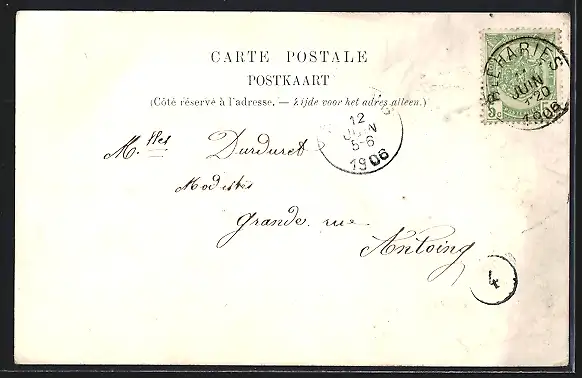 CARTE POSTALE
POSTKAART
(Côté réservé à l'adresse. — Zijde voor het adres alleen.)
12
JUIN
5-6
1906
JUIN
1906
M.lles Durduret
Modistes
Grande rue
Antoing
4